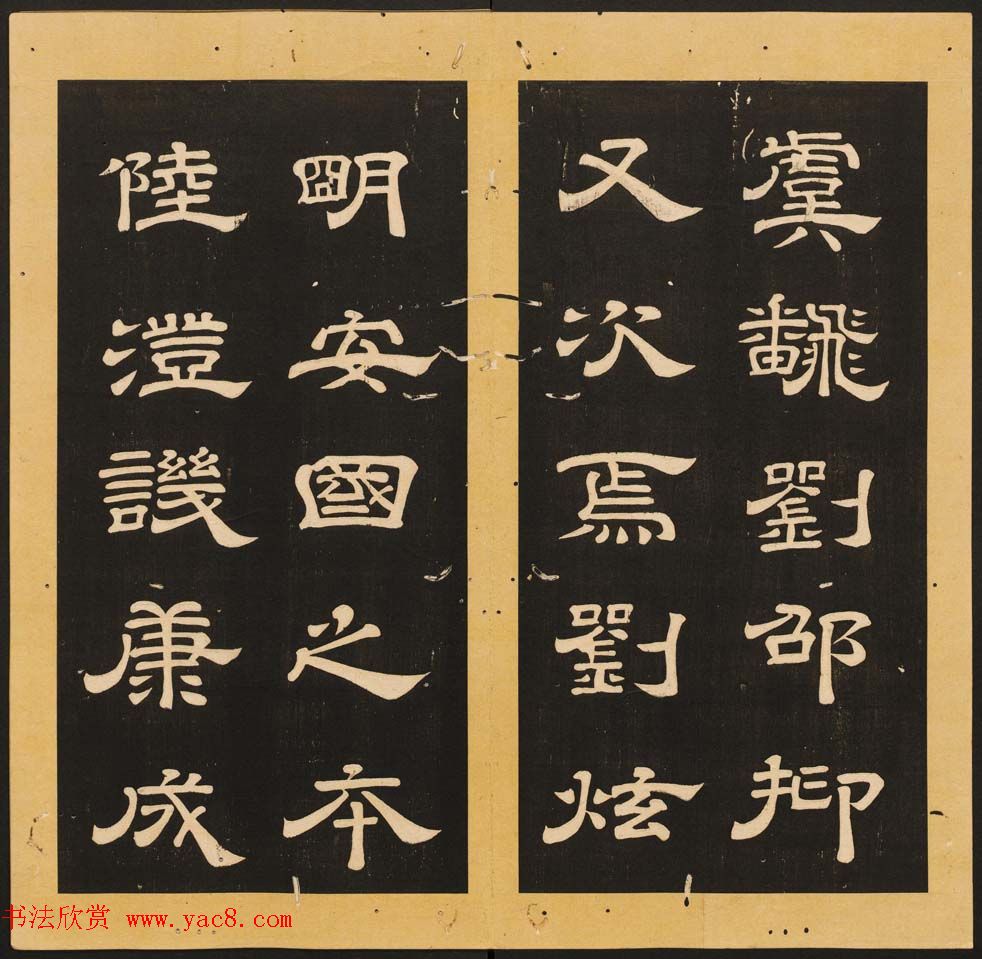 虞翻劉邵抑
又次焉劉炫
明安國之本
陸澄譏康成
书法欣赏 www.yac8.com